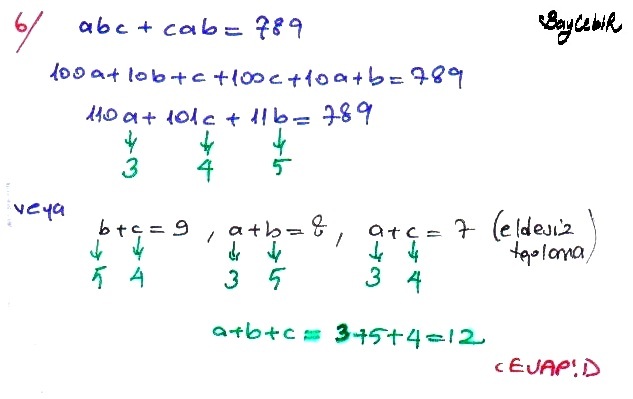 6/ abc + cab = 789
BaycebiR
100a + 10b + c + 100c + 10a + b = 789
110a + 101c + 11b = 789
↓ ↓ ↓
3 4 5
veya
b + c = 9 , a + b = 8 , a + c = 7 (eldesiz toplama)
↓ ↓ ↓ ↓ ↓ ↓
5 4 3 5 3 4
a + b + c = 3 + 5 + 4 = 12
CEVAP: D